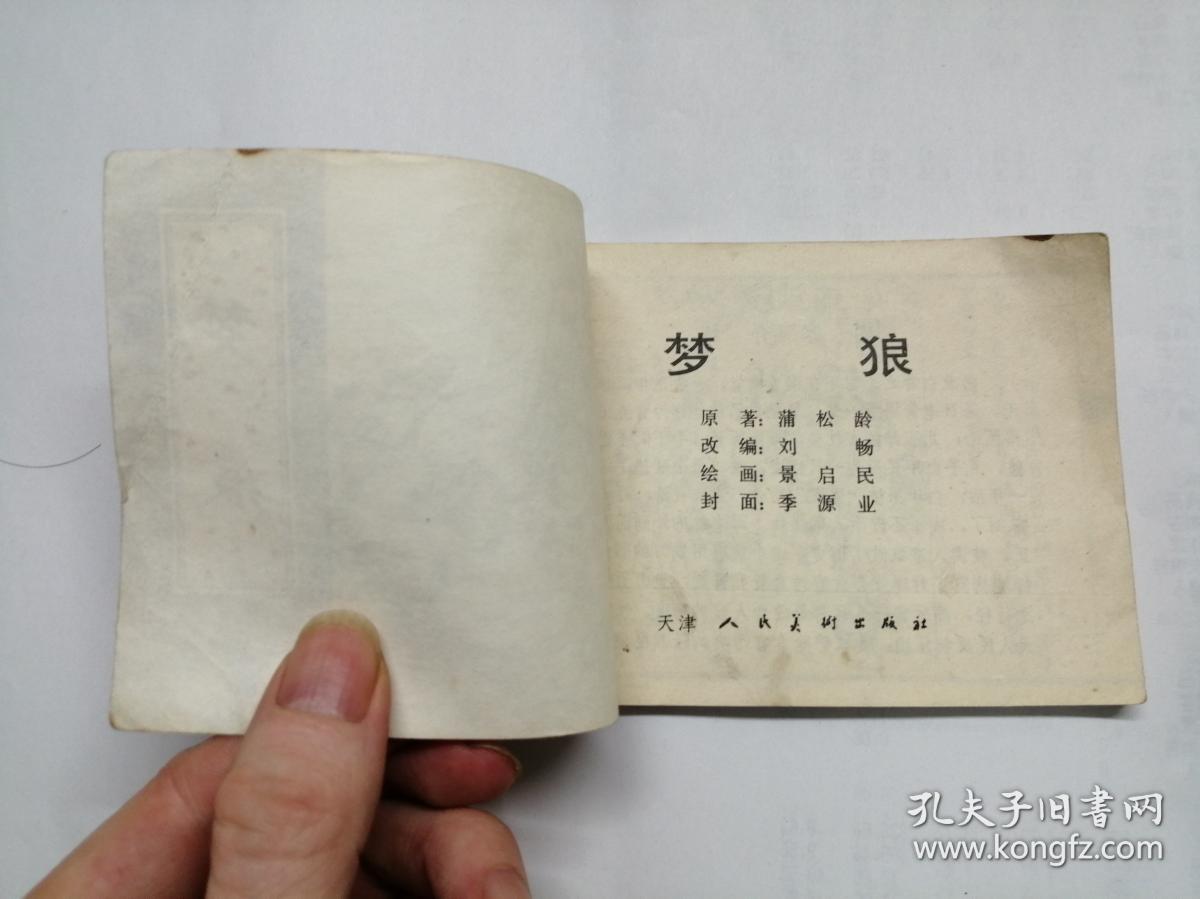 梦 狼
原 著：蒲 松 龄
改 编：刘 畅
绘 画：景 启 民
封 面：季 源 业
天津 人民美术出版社
孔夫子旧書网
www.kongfz.com